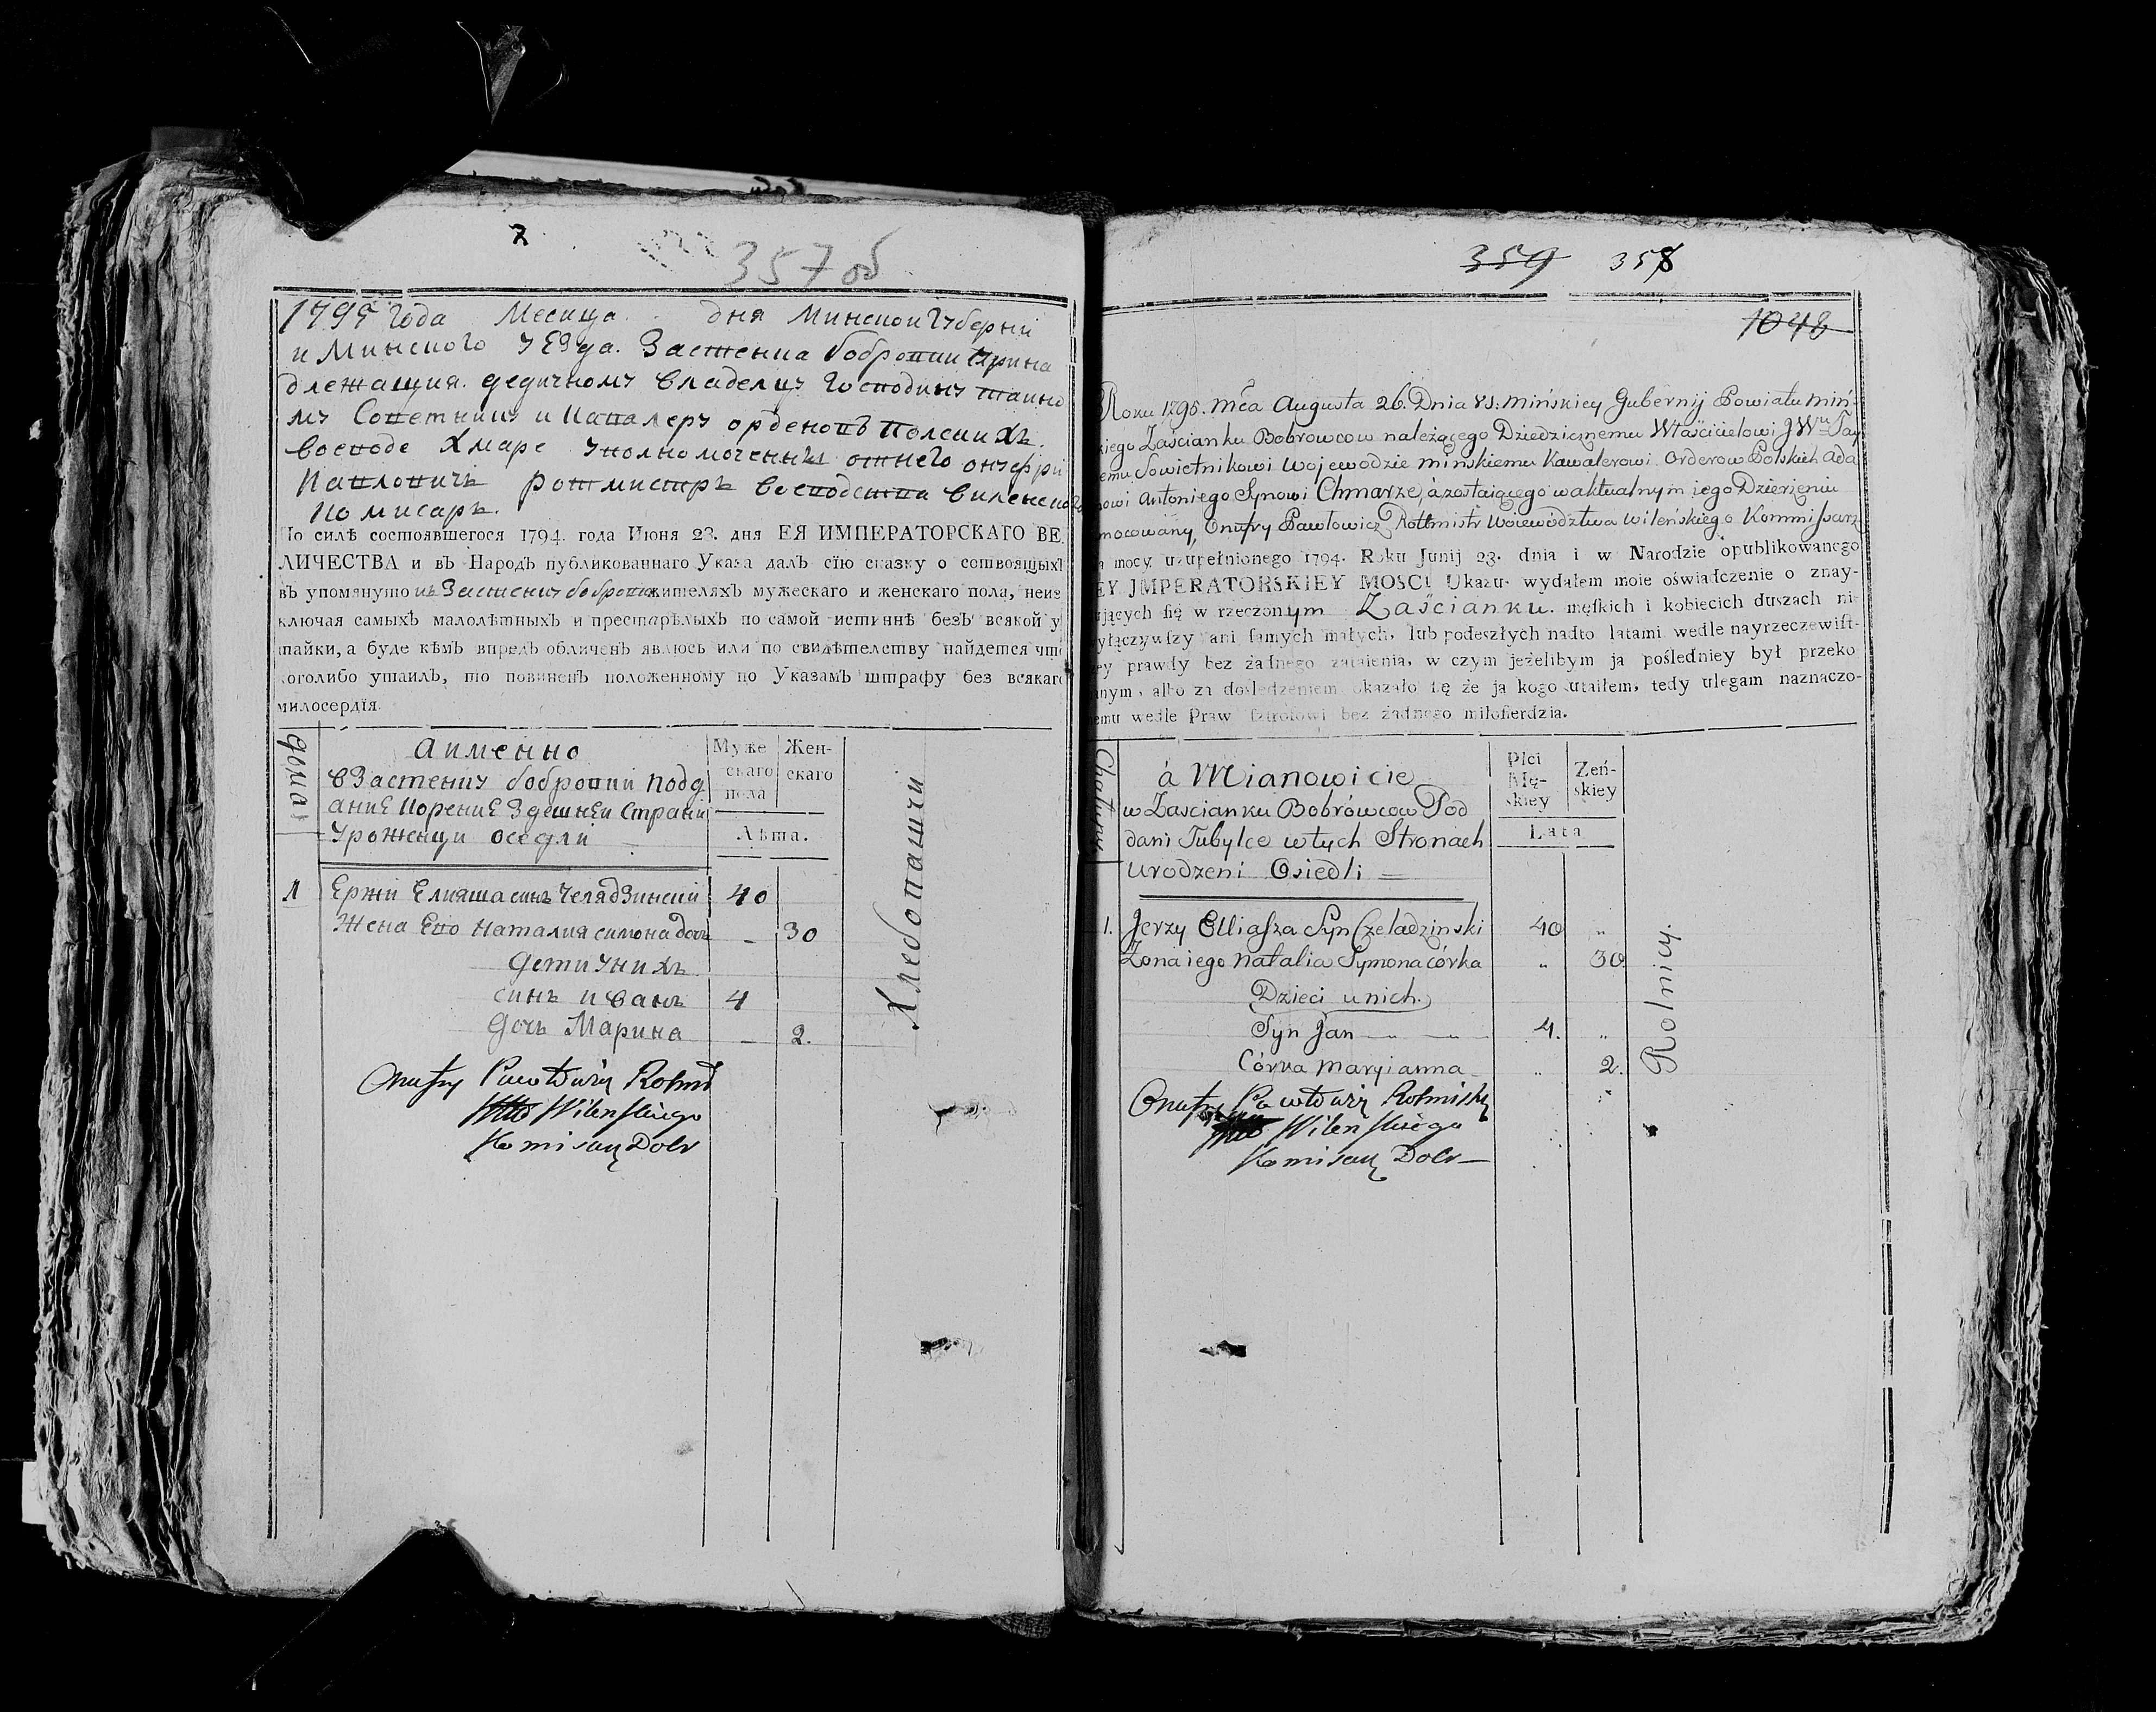 357 об
1795 года Месяца дня Минской Губернии
и Минского уезда. Застенка бобровки прина
длежащия. дедичному владелцу господину тайно
му Советнику и Кавалеру орденовъ полскихъ.
воеводе Хмаре уполномоченный отнего онуфри
Павловичъ ротмистръ воеводства виленского
комисаръ.
По силѣ состоявшегося 1794. года Июня 23. дня ЕЯ ИМПЕРАТОРСКАГО ВЕ
ЛИЧЕСТВА и въ Народъ публикованнаго Указа далъ сїю сказку о состоящихъ
въ упомянуто Застенку бобровки жителяхъ мужескаго и женскаго пола, неис
ключая самыхъ малолѣтныхъ и престарѣлыхъ по самой истиннѣ безъ всякой у
тайки, а буде кѣмъ впредь обличенъ явлюсь или по свидѣтелству найдется что
коголибо утаилъ, то повиненъ положенному по Указамъ штрафу без всякаго
милосердїя.
дома
Аименно
взастенку бобровки подд
ание корение здешней страни
уроженци оседли
Муже
скаго
пола
Жен-
скаго
Лѣта.
1 Ержи Елияша синъ Челядзинский 40
Жена Его Наталия симона дочь - 30
дети унихъ
синъ иванъ 4
дочь Марина - 2.
Хлебопашци
Onufry Pawłowicz Rotm
Wilenskiego
Komisarz Dobr
359 358
1048
Roku 1795. Mca Augusta 26. Dnia vs: Mińskiey Gubernij Powiatu Miń-
skiego Zaścianku Bobrowcow należącego Dziedzicznemu Właścicielowi JW Tay
emu Sowietnikowi Wojewodzie Mińskiemu Kawalerowi Orderow Polskich Ada
mowi Antoniego Synowi Chmarze, à zostaiącego w aktualnym iego Dzierżeniu
mocowany, Onufry Pawłowicz Rottmistr Woiewodztwa Wileńskiego Kommissarz
a mocy uzupełnionego 1794. Roku Junij 23. dnia i w Narodzie opublikowanego
EY JMPERATORSKIEY MOSCI Ukazu wydałem moie oświadczenie o znay-
ujących się w rzeczonym Zaścianku. męskich i kobiecich duszach ni
wyłączywszy ani samych małych, lub podeszłych nadto latami wedle nayrzeczewist-
ey prawdy bez żadnego zataienia, w czym jeżelibym ja pośledniey był przeko
anym, albo za dośledzeniem okazało się że ja kogo utaiłem, tedy ulegam naznaczo-
nemu wedle Praw sztrofowi bez żadnego miłosierdzia.
Chałupy
à Mianowicie
w Zascianku Bobrówcow Pod
dani Tubylce w tych Stronach
urodzeni Osiedli
Płci
Mę-
skiey
Żeń-
skiey
Lata
1. Jerzy Elliasza Syn Czeladzinski 40 „
Żona iego Natalia Symona córka „ 30.
Dzieci u nich.
Syn Jan 4. „
Córka Maryianna „ 2.
Rolnicy.
Onufry Pawłowicz Rotmistrz
Wilenskiego
Komisarz Dobr